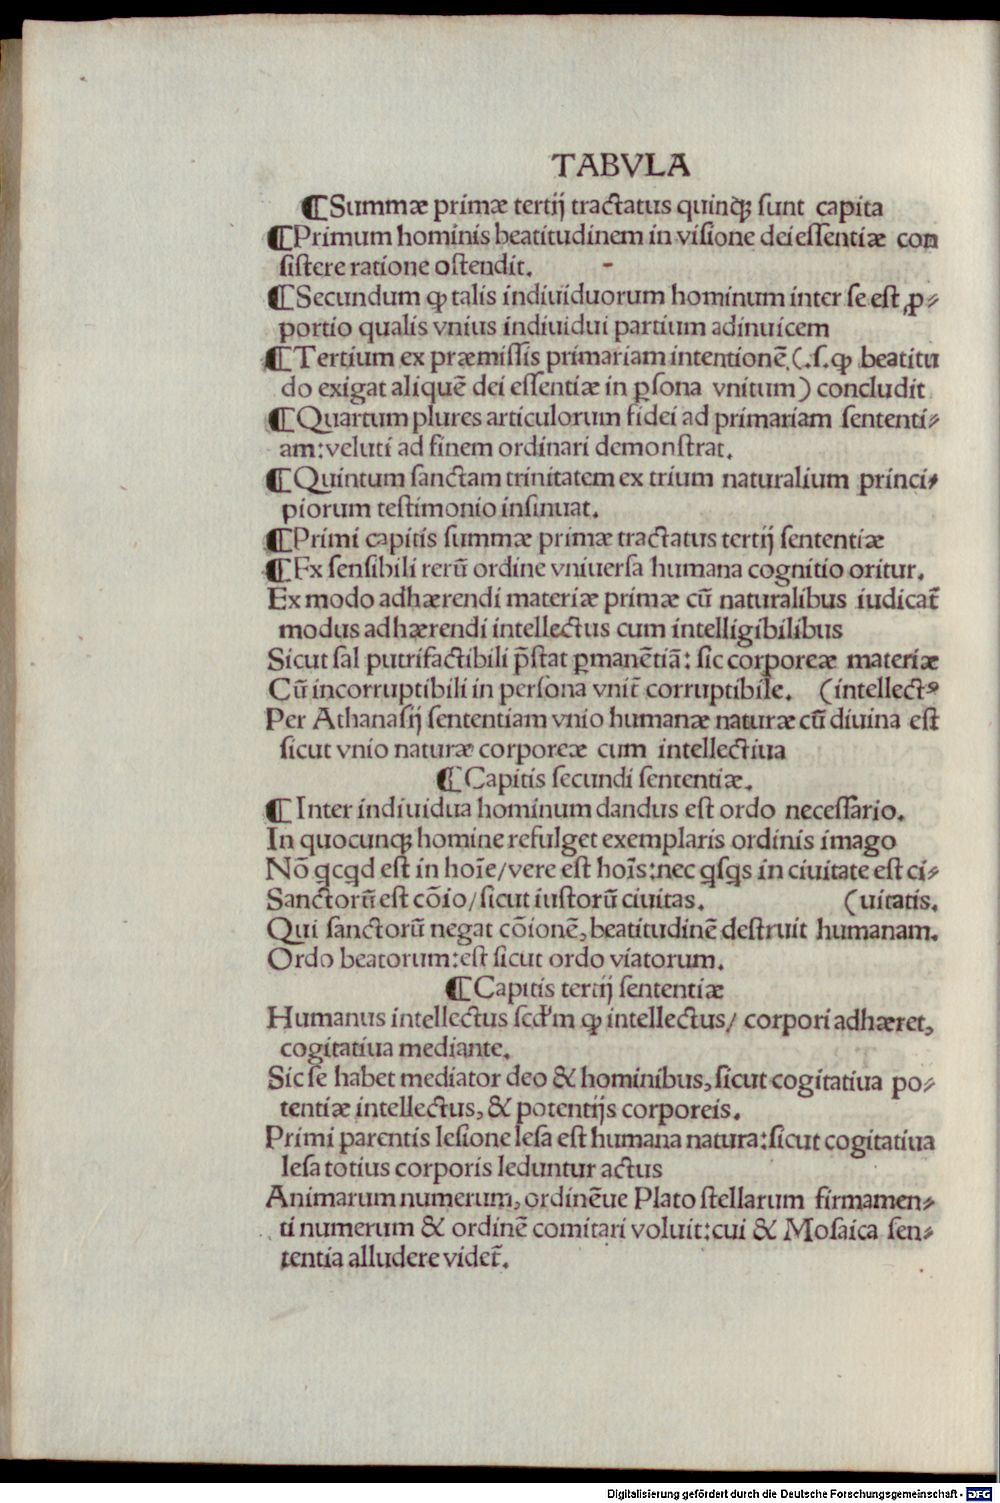 TABVLA
¶Summæ primæ tertij tractatus quinqꝫ sunt capita
¶Primum hominis beatitudinem in visione dei eſſentiæ con
ſiſtere ratione oſtendit.
¶Secundum ꝙ talis indiuiduorum hominum inter ſe eſt ꝓ⸗
portio qualis vnius indiuidui partium adinuicem
¶Tertium ex præmiſſis primariam intentionē (.ſ.ꝙ beatitu
do exigat aliquē dei eſſentiæ in ꝑſona vnitum) concludit
¶Quartum plures articulorum fidei ad primariam ſententi⸗
am:veluti ad finem ordinari demonſtrat.
¶Quintum ſanctam trinitatem ex trium naturalium princi⸗
piorum teſtimonio inſinuat.
¶Primi capitis ſummæ primæ tractatus tertij ſententiæ
¶Ex ſenſibili rerū ordine vniuerſa humana cognitio oritur.
Ex modo adhærendi materiæ primæ cū naturalibus iudicat̄
modus adhærendi intellectus cum intelligibilibus
Sicut ſal putrifactibili p̄ſtat ꝑmanētiā: ſic corporeæ materiæ
Cū incorruptibili in perſona vnit̄ corruptibile. (intellectꝰ
Per Athanaſij ſententiam vnio humanæ naturæ cū diuina eſt
ſicut vnio naturæ corporeæ cum intellectiua
¶Capitis ſecundi ſententiæ.
¶Inter indiuidua hominum dandus eſt ordo neceſſario.
In quocunqꝫ homine refulget exemplaris ordinis imago
Nō ꝗcꝗd eſt in hoīe/vere eſt hoīs:nec ꝗſꝗs in ciuitate eſt ci⸗
Sanctorū eſt cōio/ſicut iuſtorū ciuitas. (uitatis.
Qui ſanctorū negat cōionē, beatitudinē deſtruit humanam.
Ordo beatorum:eſt ſicut ordo viatorum.
¶Capitis tertij ſententiæ
Humanus intellectus ſcd'm ꝙ intellectus/ corpori adhæret,
cogitatiua mediante.
Sic ſe habet mediator deo & hominibus, ſicut cogitatiua po⸗
tentiæ intellectus, & potentijs corporeis.
Primi parentis leſione leſa eſt humana natura:ſicut cogitatiua
leſa totius corporis leduntur actus
Animarum numerum, ordinēue Plato ſtellarum firmamen⸗
ti numerum & ordinē comitari voluit:cui & Moſaica ſen⸗
tentia alludere videt̄.
Digitalisierung gefördert durch die Deutsche Forschungsgemeinschaft - DFG